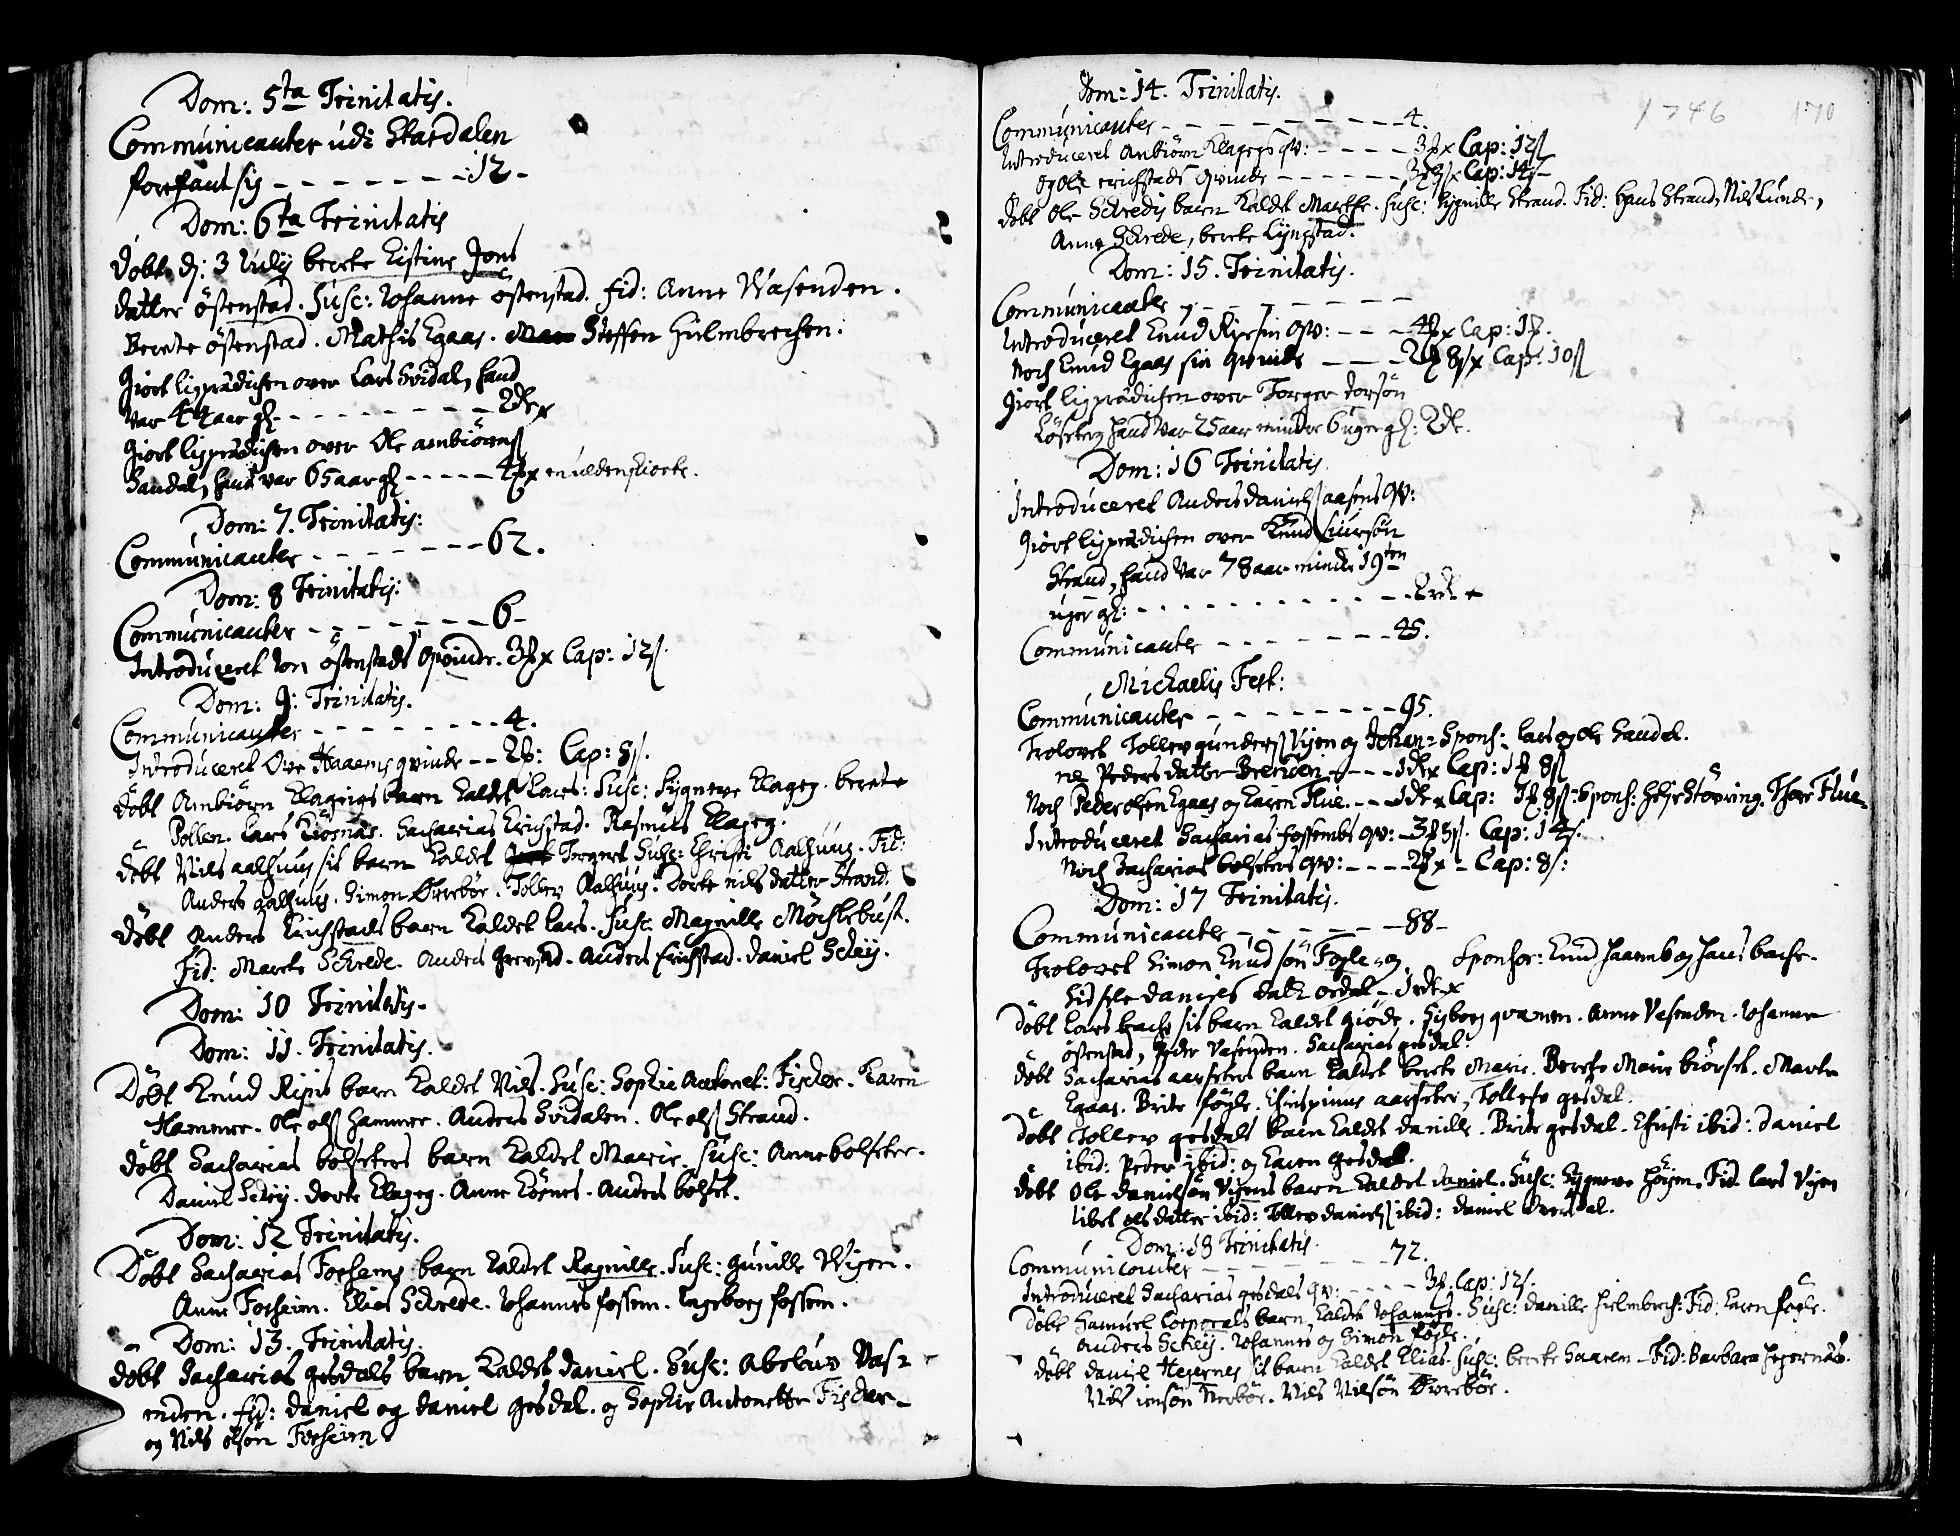 Dom: 5ta Trinitatis.
Communicanter udi Stardalen
forefant sig - - - - - - - 12 -
Dom: 6ta Trinitatis
Döbt d: 3 July berete Listine Jons
datter östenstad. Susc: Johanne östenstad. fid: Anne Wasenden.
Berete östenstad. Mathis Egaas. Steffen Hülmbrechen.
Giort ligprædichen over Lars Svidal, hand
var 44 aar gl - - - - - - - - 2dr
Giort ligprædichen over Ole ambiörns
Sandal, hand var 65 aar gl - - - - -
Dom: 7. Trinitatis:
Communicanter - - - - - - - 62.
Dom: 8 Trinitatis:
Communicanter - - - - - - - 6 -
Introduceret Jon östenstads qvinde. Cap: 12s.
Dom: 9: Trinitatis.
Communicanter - - - - - - - 4.
Introduceret Ove Haaems qvinde - - Cap: 8s.
döbt Ambiörn Klagegs barn kaldet Lars: Susc: Sygneve Klageg. berete
Pollen. Lars Kiösnas. Sacharias Erichstad. Rasmus Klageg.
döbt Nils aalhuus sit barn kaldet Torgert Susc: Christi Aalhuus. Fid:
Anders aalhuus. Simon Övrebör. Tollev Aalhuus. Dorte nils datter Strand.
döbt Anders Erichstads barn kaldet Lars. Susc Magnille Möchlebust.
Fid: Marete Schrede. Anders Grevstad. Anders Erichstad. daniel Scheij.
Dom: 10 Trinitatis.
Dom: 11. Trinitatis.
Döbt Knud Ripis barn kaldet Nils. Susc: Sophie Antonet: Fischer. Karen
Hammer. Ole ols Hammer. Anders Svidalen. Ole ols Strand.
döbt Sacharias bolseters barn kaldet Marie. Susc: Anne bolseter.
Daniel Scheij. dorte Klageg. Anne Kösnes. Anders bolset.
Dom: 12 Trinitatis.
Döbt Sacharias Forhems barn kaldet Ragnille. Susc: Gunille Wigen.
Anne Forheim. Elias Schrede. Johannes fossem. Ingeborg fossem.
Dom: 13. Trinitatis.
döbt Zacharias gesdals barn kaldet daniel. Susc: Abelüv Vas=
enden. fid: daniel og daniel gesdal. og Sophie Antonette Fischer
og Nils olsön Forheim
1746 170
Dom: 14. Trinitatis.
Communicanter - - - - - - - - - 4.
Introduceret Anbiörn Klagegs qv: - - - - Cap: 12s
og Ole erichstads qvinde - - - - - - Cap: 14s
döbt Ole Schredis barn kaldet Marthe. Susc: Sygnille Strand. Fid: hans Strand, Nils Lunde,
Anne Schrede, berete Lyngstad.
Dom: 15. Trinitatis.
Communicanter - - - - - - -
Introduceret Knud Ripsin qv: - - - Cap:
Noch Knud Egaas sin qvinde - - - - Cap: 10s
Giort ligprædichen over Torger Jorsön
Löseberg hand var 25 aar mindre 6 uger gl: 2dr.
Dom: 16 Trinitatis.
Introduceret Anders daniels aasens qv:
Giort ligprædichen over Knud Siursön
Strand, hand var 78 aar mindre 19ten
uger gl: - - - - - - - - - - - 2dr
Communicanter - - - - - - - 45.
Michaelis Fest:
Communicanter - - - - - - - - 95.
Trolovet Tollev gunders Vijen og Johan= Spons: Lars og Ole Sandal.
ne Peders datter Brenden - - - Cap:
Noch Peder olsen Egaas og Karen Flue. - - - Cap: Spons: Helje Stöpring. Thore Flue
Introduceret Sacharias fossembs qv: Cap: 14s.
Noch Zacharias bolseters qv: - - - - Cap: 8s:
Dom: 17 Trinitatis.
Communicanter - - - - - - 88 -
Trolovet Simon Knudsön Fögle og Sponsor: Knud haamb og hans bache.
Sidsele daniels datt ordal
Döbt Lars bache sit barn kaldet Giöde. Sigborg qvamen. Anne Vasenden. Johanne
östenstad, Peder Vasenden. Sacharias gesdal.
döbt Sacharias aarseters barn kaldet berete Marie. Berete Marie biörset. Marte
Egaas. Brite fögle. Chrispinus aarseter, Tollef gesdal.
Döbt Tollev gesdals barn kaldet danille. Brite gesdal. Christi ibid: daniel
ibid: Peder ibid: og Karen gesdal.
döbt Ole danielsön Vijens barn kaldet daniel. Susc: Sygneve höijem. Fid Lars Vijen
libet ols datter ibid: Tollev daniels ibid: daniel Överdal.
Dom: 18 Trinitatis.
Communicanter - - - - - - - 72.
Introduceret Sacharias gesdals qv: - - - - Cap: 12s.
döbt Samuel Corporals barn kaldet Johannes. Susc: danille hielmbrech: Fid: Karen fögle.
Anders Scheij. Johannes og Simon fögle.
döbt daniel Hegernes sit barn kaldet Elias. Susc: berete Haarem - Fid: Barbara hegernæs.
Nils jensön Nerbör. Nils Nilsön Övrebör.